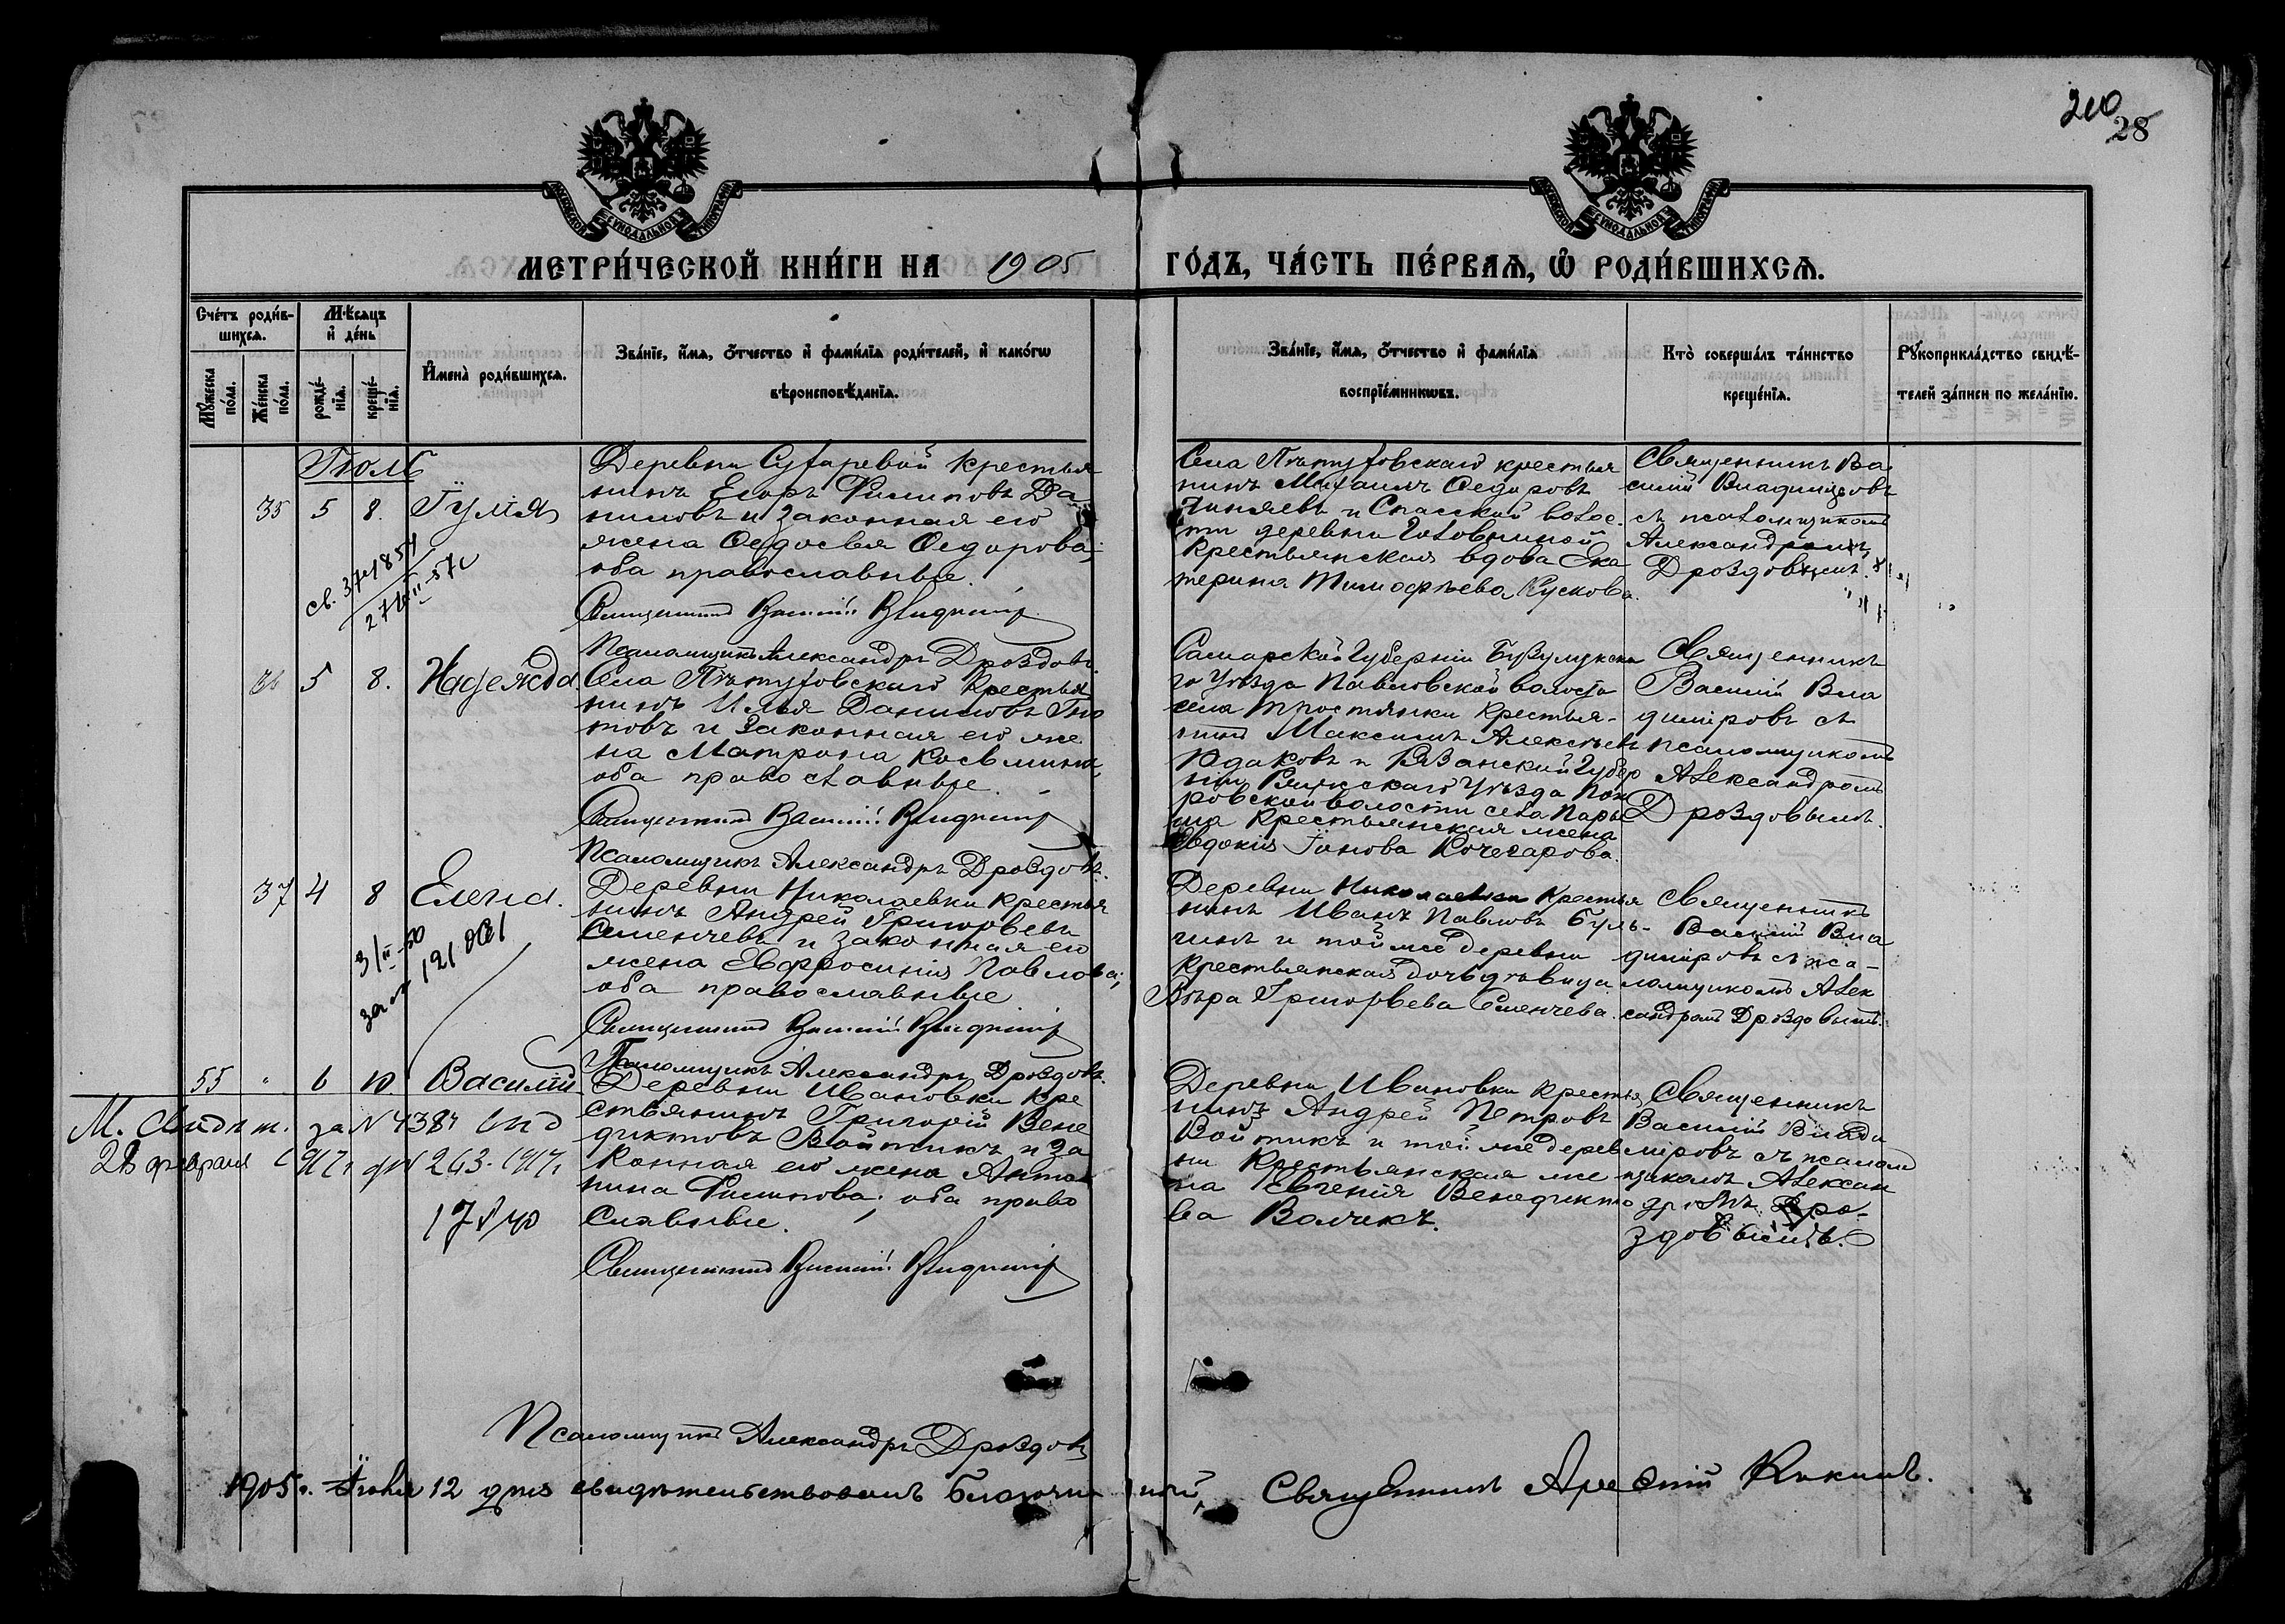 210
28
МЕТРИ́ЧЕСКОЙ КНИ́ГИ НА 1905 ГО́ДЪ, ЧА́СТЬ ПЕ́РВАѦ, Ѽ РОДИ́ВШИХСѦ.
Сче́тъ роди́в-
шихсѧ.
Мꙋ́жеска по́ла.
Же́нска по́ла.
Мѣ́сѧцъ и҆ де́нь
рожде́-
нїѧ.
креще́-
нїѧ.
И҆мена̀ роди́вшихсѧ.
Зва́нїе, и҆́мѧ, ѻ҆́тчество и҆ фами́лїѧ роди́телей, и҆ како́гѡ
вѣроисповѣ́данїѧ.
Зва́нїе, и҆́мѧ, ѻ҆́тчество и҆ фами́лїѧ
воспрїе́мникѡвъ.
Кто̀ соверша́лъ та́инство
креще́нїѧ.
Рꙋкоприкла́дство свидѣ́-
телей за́писи по жела́нїю.
Іюль
35 5 8. Іулія
Деревни Сухаревой крестья
нинъ Егоръ Филиповъ Да
ниловъ и законная его
жена Ѳедосья Ѳедорова;
оба православные.
Священникъ Василій Владиміровъ
Псаломщикъ Александръ Дроздовъ.
Села Пѣтуховскаго крестья
нинъ Михаилъ Ѳедоровъ
и Спасской волос-
ти деревни Головниной
крестьянская вдова Ека
терина Тимофѣева Кускова.
Священникъ Ва
силій Владиміровъ
съ псаломщикомъ
Александромъ
Дроздовымъ.
36 5 8. Надежда.
Села Пѣтуховскаго крестья
нинъ Илья Даниловъ
и законная его же
на Матрона Косьмина,
оба православные.
Священникъ Василій Владиміровъ
Псаломщикъ Александръ Дроздовъ.
Самарской губерніи Бузулукска
го уѣзда Павловской волости
села Тростянки крестья-
нинъ Максимъ Алексѣевъ
Юдаковъ и Рязанской губер
ніи Ряжскаго уѣзда
волости села
крестьянская жена
Евдокія Іонова Кочегарова.
Священникъ
Василій Вла
диміровъ съ
псаломщикомъ
Александромъ
Дроздовымъ.
37 4 8 Елена.
Деревни Николаевки крестья
нинъ Андрей Григорьевъ
Семенчевъ и законная его
жена Евфросинія Павлова;
оба православные
Священникъ Василій Владиміровъ
Псаломщикъ Александръ Дроздовъ.
Деревни Николаевки крестья
нинъ Иванъ Павловъ Буль-
гинъ и той же деревни
крестьянская дочь дѣвица
Вѣра Григорьева Семенчева.
Священникъ
Василій Вла
диміровъ съ пса-
ломщикомъ Алек
сандромъ Дроздовымъ.
55 " 6 10. Василій
Деревни Ивановки кре
стьянинъ Григорій Вене
диктовъ Войтикъ и за
конная его жена Анто
нина Филипова; оба право
славные.
Священникъ Василій Владиміровъ
Деревни Ивановки крестья
нинъ Андрей Петровъ
Войтикъ и той же дерев
ни крестьянская же
на Евгенія Венедикто
ва Волчекъ.
Священникъ
Василій Влади
міровъ съ псалом
щикомъ Алексан
дромъ Дро-
здовымъ.
за № 4384
28 февраля 1917 г. 263. 1917 г.
Псаломщикъ Александръ Дроздовъ
1905 г. 12 дня свидѣтельствовалъ благочинный, Священникъ Арсеній